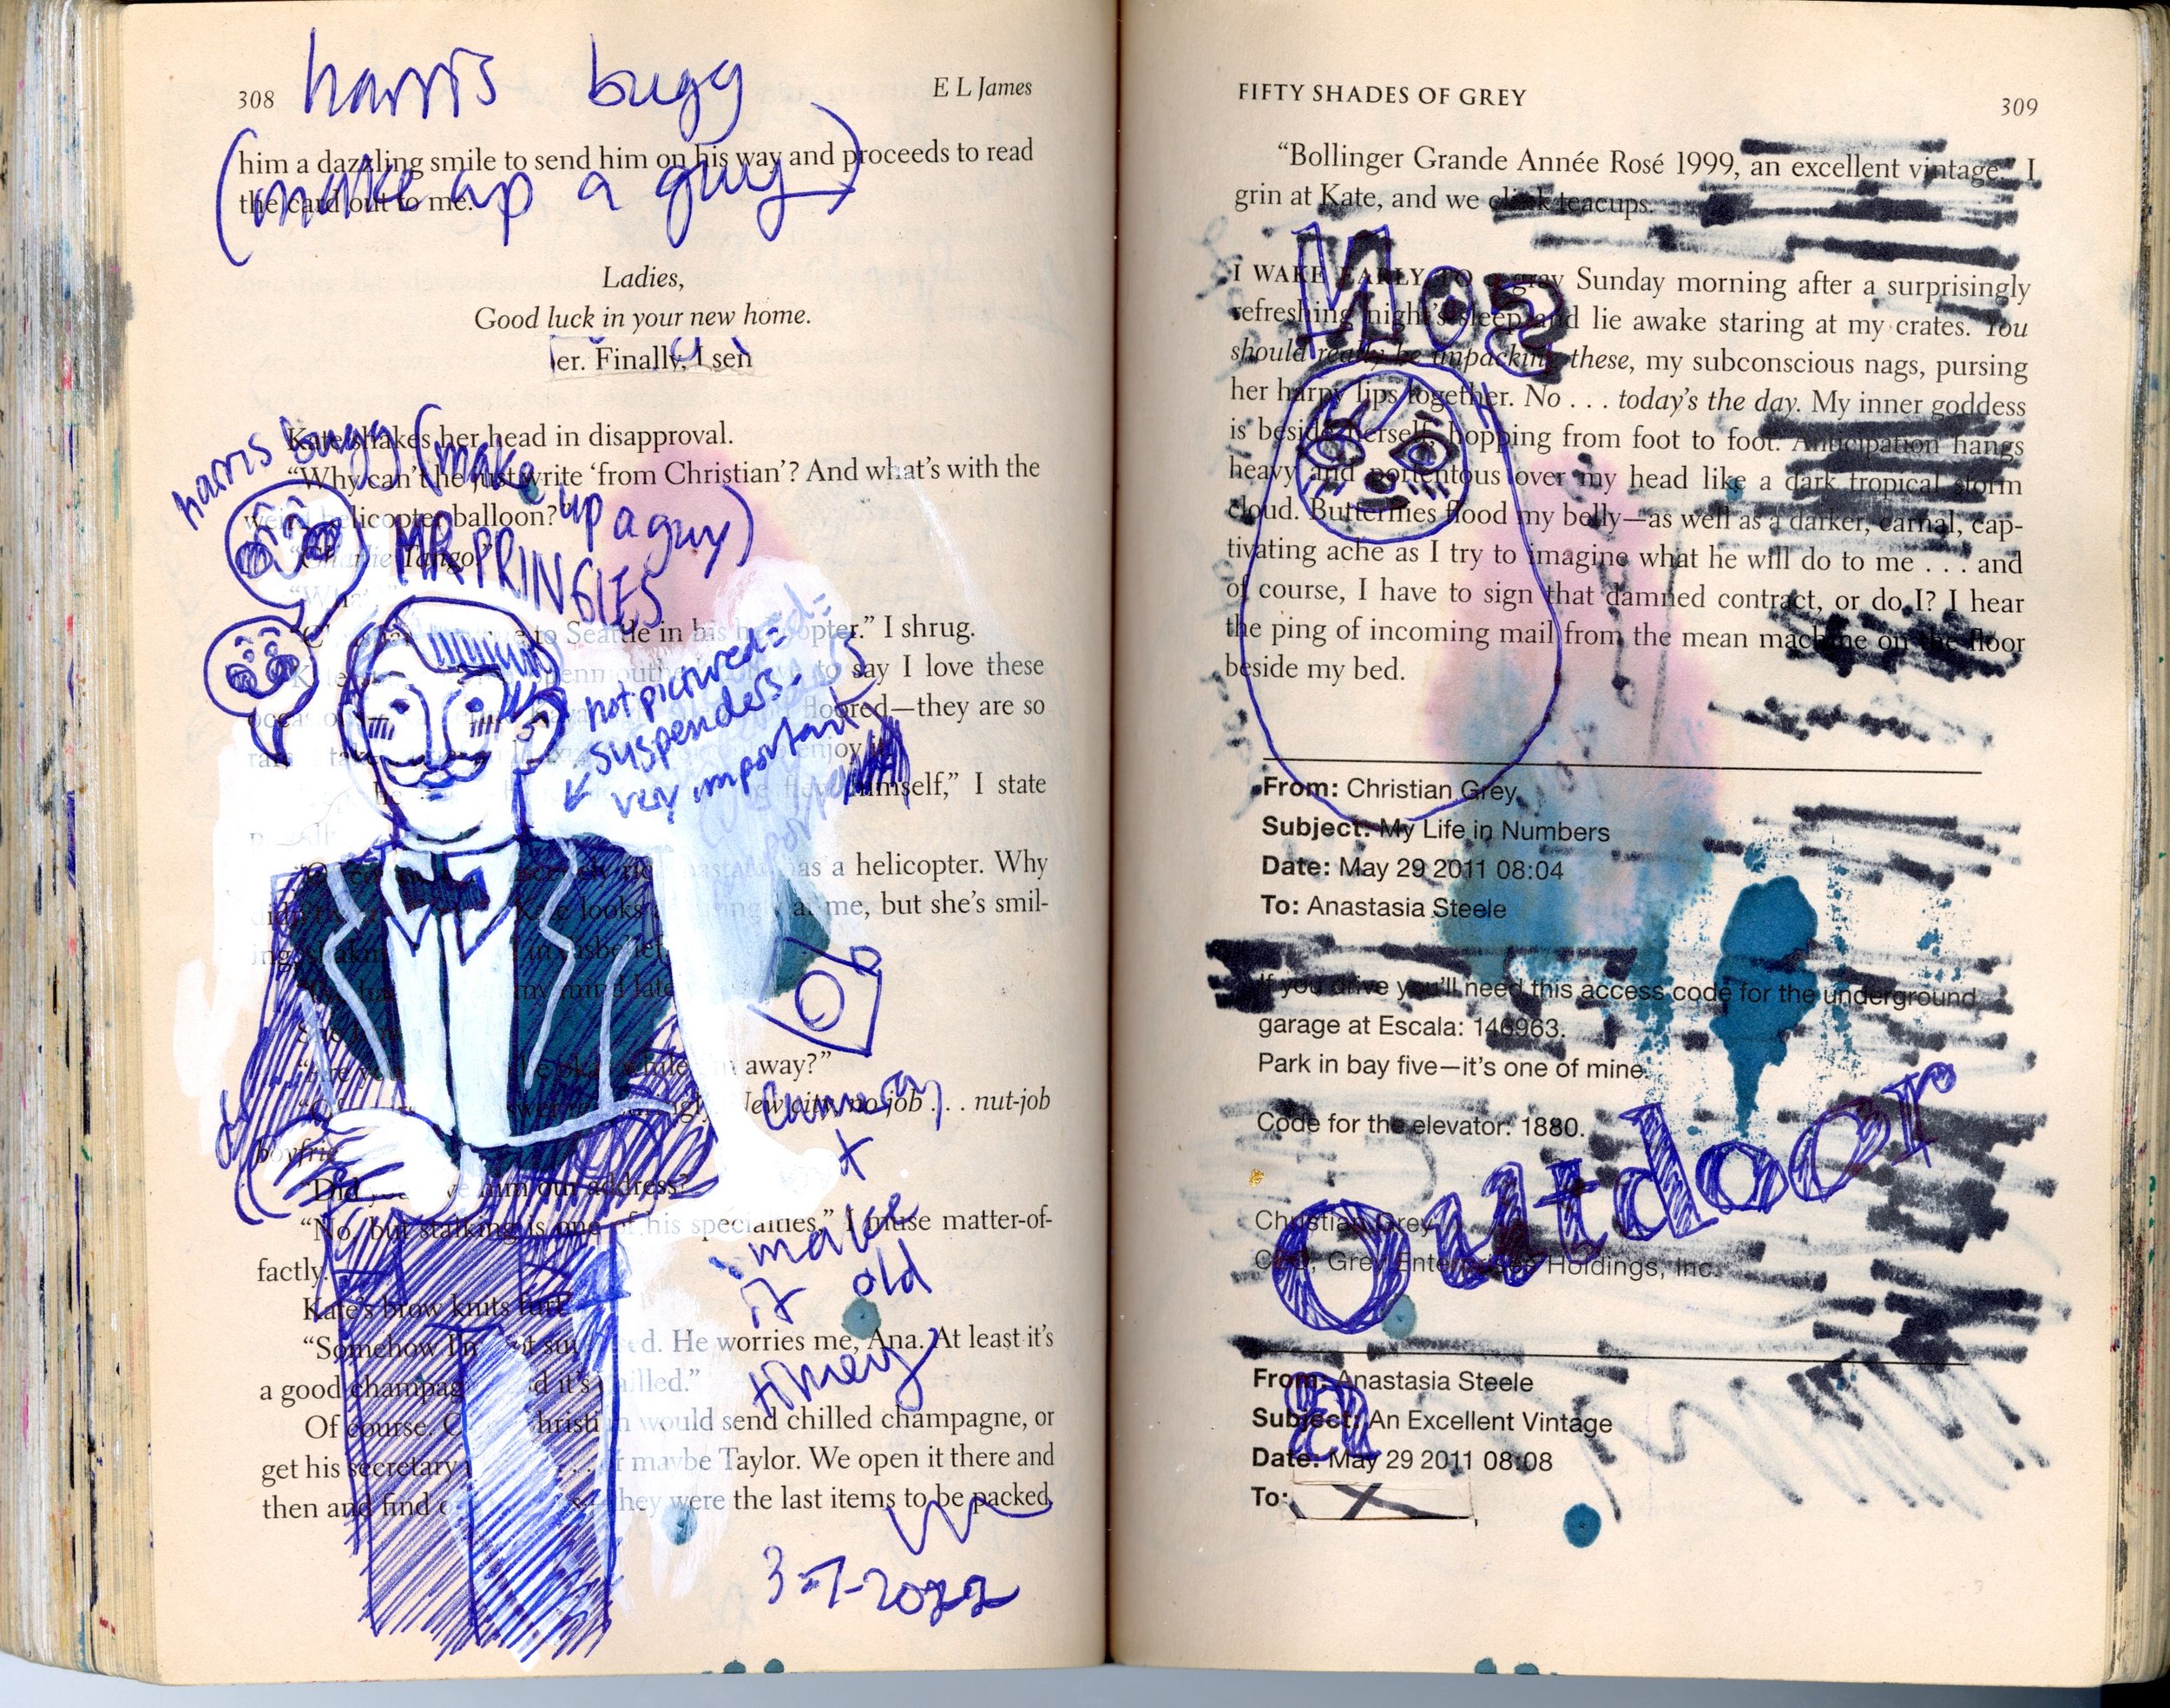 harris bugg
308 E L James
(make up a guy)
him a dazzling smile to send him on his way and proceeds to read
the card out to me.
Ladies,
Good luck in your new home.
er. Finally, I sen
harris bugg (make up a guy)
Kate shakes her head in disapproval.
"Why can't he just write 'from Christian'? And what's with the
weird helicopter balloon?"
"Charlie Tango."
MR PRINGLES
to Seattle in his helicopter." I shrug.
to say I love these
floored—they are so
enjoy
not pictured:
suspenders.
very important
himself," I state
has a helicopter. Why
looks at me, but she's smil-
ing
my mind late
away?"
New city, no job . . . nut-job
boyfrie
clumsy
+
make
it old
timey
"Did him our address?"
"No, but stalking is one of his specialties," I muse matter-of-
factly.
Kate's brow knits furt
"Somehow I'm He worries me, Ana. At least it's
a good champag d it's chilled."
Of course. Christian would send chilled champagne, or
get his secretary or maybe Taylor. We open it there and
then and find they were the last items to be packed.
3-7-2022
FIFTY SHADES OF GREY 309
"Bollinger Grande Année Rosé 1999, an excellent vintage." I
grin at Kate, and we clink teacups.
I WAKE EARLY TO a gray Sunday morning after a surprisingly
refreshing night's sleep and lie awake staring at my crates. You
should really be unpacking these, my subconscious nags, pursing
her harpy lips together. No . . . today's the day. My inner goddess
is beside herself, hopping from foot to foot. Anticipation hangs
heavy and portentous over my head like a dark tropical storm
cloud. Butterflies flood my belly—as well as a darker, carnal, cap-
tivating ache as I try to imagine what he will do to me . . . and
of course, I have to sign that damned contract, or do I? I hear
the ping of incoming mail from the mean machine on the floor
beside my bed.
From: Christian Grey
Subject: My Life in Numbers
Date: May 29 2011 08:04
To: Anastasia Steele
If you drive you'll need this access code for the underground
garage at Escala: 146963.
Park in bay five—it's one of mine.
Code for the elevator: 1880.
Outdoor
Christian Grey
CEO, Grey Enterprises Holdings, Inc.
From: Anastasia Steele
a
Subject: An Excellent Vintage
Date: May 29 2011 08:08
To: